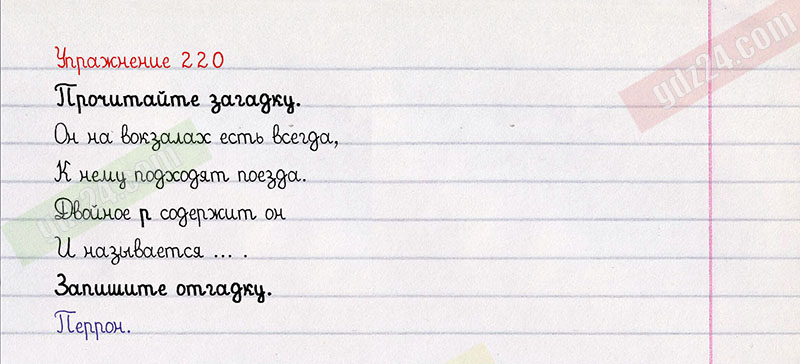 Упражнение 220
Прочитайте загадку.
Он на вокзалах есть всегда,
К нему подходят поезда.
Двойное р содержит он
И называется ... .
Запишите отгадку.
Перрон.
gdz24.com
gdz24.com